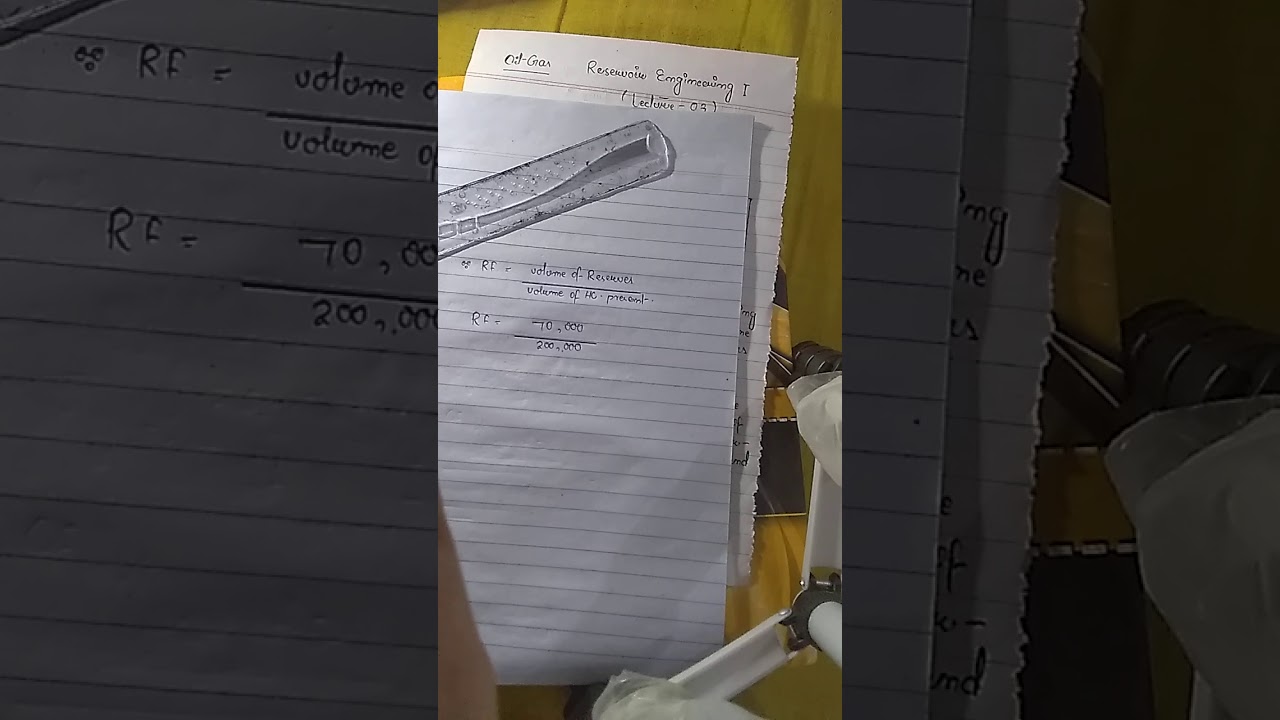 Oil-Gas Reservoir Engineering I
(Lecture-03)
∴ RF = volume of Reserves
volume of HC. present.
RF = 70,000
200,000